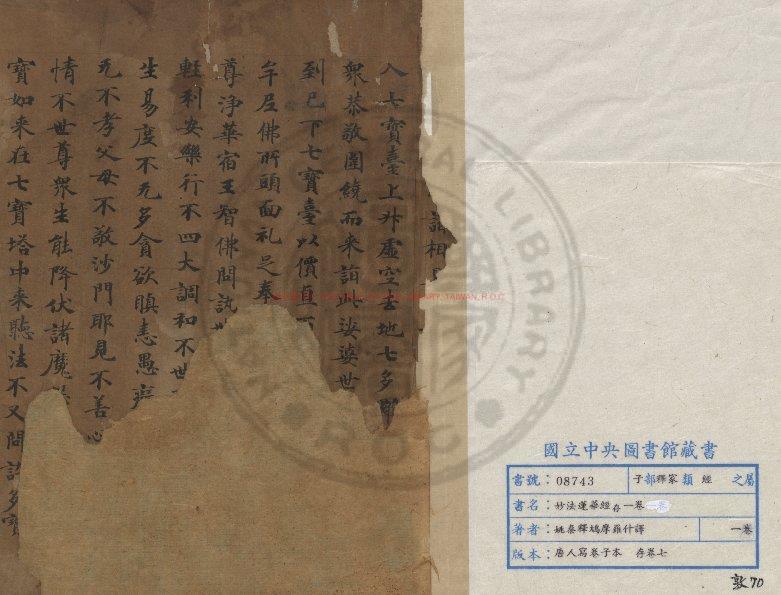 諸相
入七寶臺上升虛空去地七多
衆恭敬圍繞而来詣此娑婆世
到已下七寶臺以價直百
牟尼佛所頭面礼足奉
尊淨華宿王智佛問訊世
輕利安樂行不四大調和不世
生易度不无多貪欲瞋恚愚
无不孝父母不敬沙門耶見不善心
情不世尊衆生能降伏諸魔
寶如来在七寶塔中来聽法不又問訊多寶
國立中央圖書館藏書
書號：08743 子部釋家類 經 之屬
書名：妙法蓮華經存一卷 一卷
著者：姚秦釋鳩摩羅什譯 一卷
版本：唐人寫卷子本 存卷七
敦70
LIBRARY, TAIWAN, R.O.C